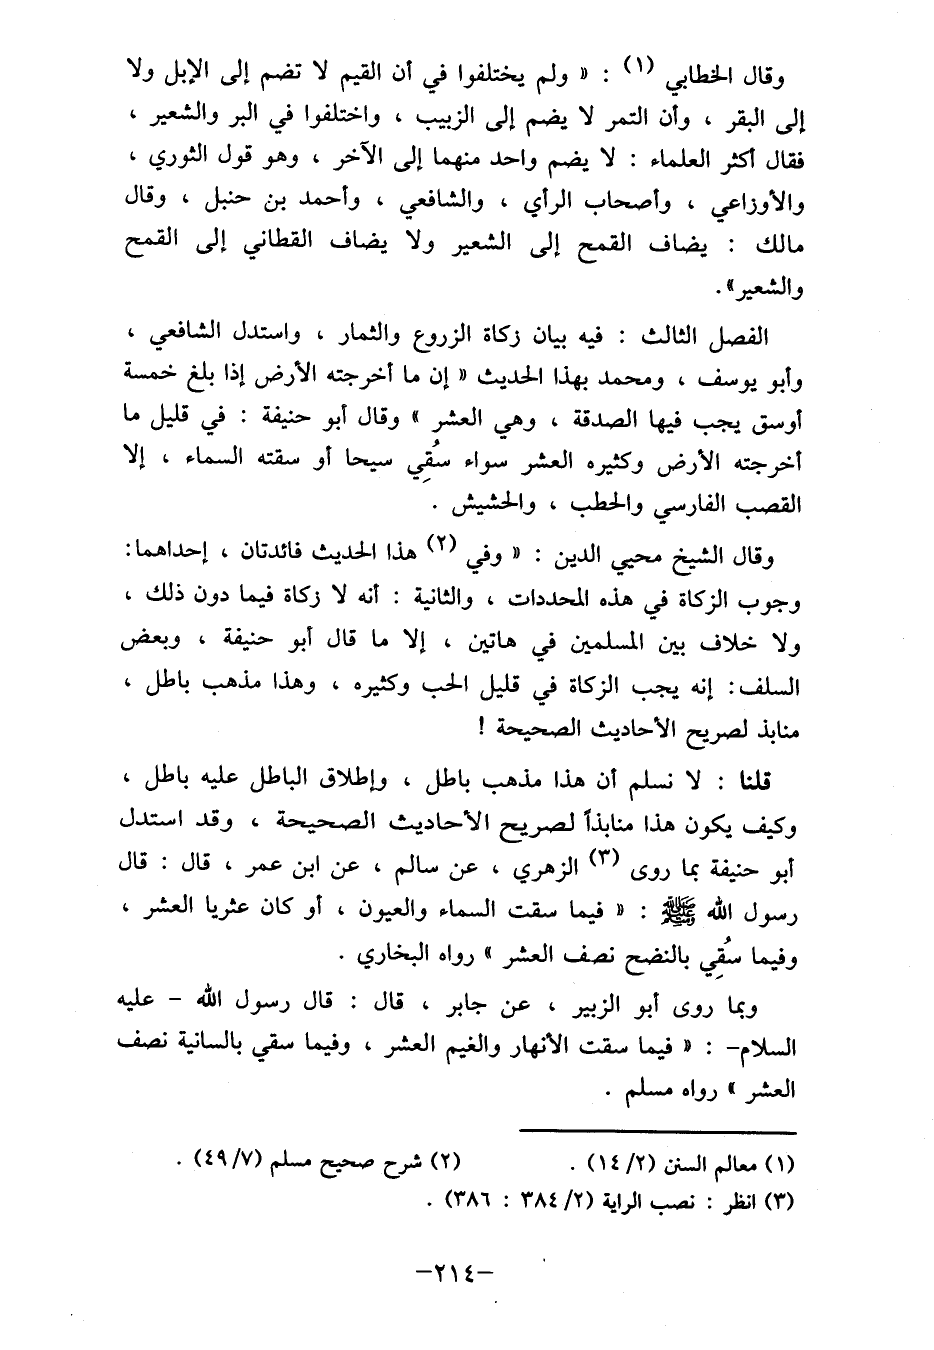 وقال الخطابي (١) : « ولم يختلفوا في أن القيم لا تضم إلى الإبل ولا
إلى البقر ، وأن التمر لا يضم إلى الزبيب ، واختلفوا في البر والشعير ،
فقال أكثر العلماء : لا يضم واحد منهما إلى الآخر ، وهو قول الثوري ،
والأوزاعي ، وأصحاب الرأي ، والشافعي ، وأحمد بن حنبل ، وقال
مالك : يضاف القمح إلى الشعير ولا يضاف القطاني إلى القمح
والشعير».
الفصل الثالث : فيه بيان زكاة الزروع والثمار ، واستدل الشافعي ،
وأبو يوسف ، ومحمد بهذا الحديث « إن ما أخرجته الأرض إذا بلغ خمسة
أوسق يجب فيها الصدقة ، وهي العشر » وقال أبو حنيفة : في قليل ما
أخرجته الأرض وكثيره العشر سواء سُقِي سيحا أو سقته السماء ، إلا
القصب الفارسي والحطب ، والحشيش .
وقال الشيخ محيي الدين : « وفي (٢) هذا الحديث فائدتان ، إحداهما:
وجوب الزكاة في هذه المحددات ، والثانية : أنه لا زكاة فيما دون ذلك ،
ولا خلاف بين المسلمين في هاتين ، إلا ما قال أبو حنيفة ، وبعض
السلف: إنه يجب الزكاة في قليل الحب وكثيره ، وهذا مذهب باطل ،
منابذ لصريح الأحاديث الصحيحة !
قلنا : لا نسلم أن هذا مذهب باطل ، وإطلاق الباطل عليه باطل ،
وكيف يكون هذا منابذاً لصريح الأحاديث الصحيحة ، وقد استدل
أبو حنيفة بما روى (٣) الزهري ، عن سالم ، عن ابن عمر ، قال : قال
رسول الله ﷺ : « فيما سقت السماء والعيون ، أو كان عثريا العشر ،
وفيما سُقِي بالنضح نصف العشر » رواه البخاري .
وبما روى أبو الزبير ، عن جابر ، قال : قال رسول الله – عليه
السلام– : « فيما سقت الأنهار والغيم العشر ، وفيما سقي بالسانية نصف
العشر » رواه مسلم .
(١) معالم السنن (٢/ ١٤) . (٢) شرح صحيح مسلم (٧/ ٤٩) .
(٣) انظر : نصب الراية (٢/ ٣٨٤ : ٣٨٦) .
–٢١٤–